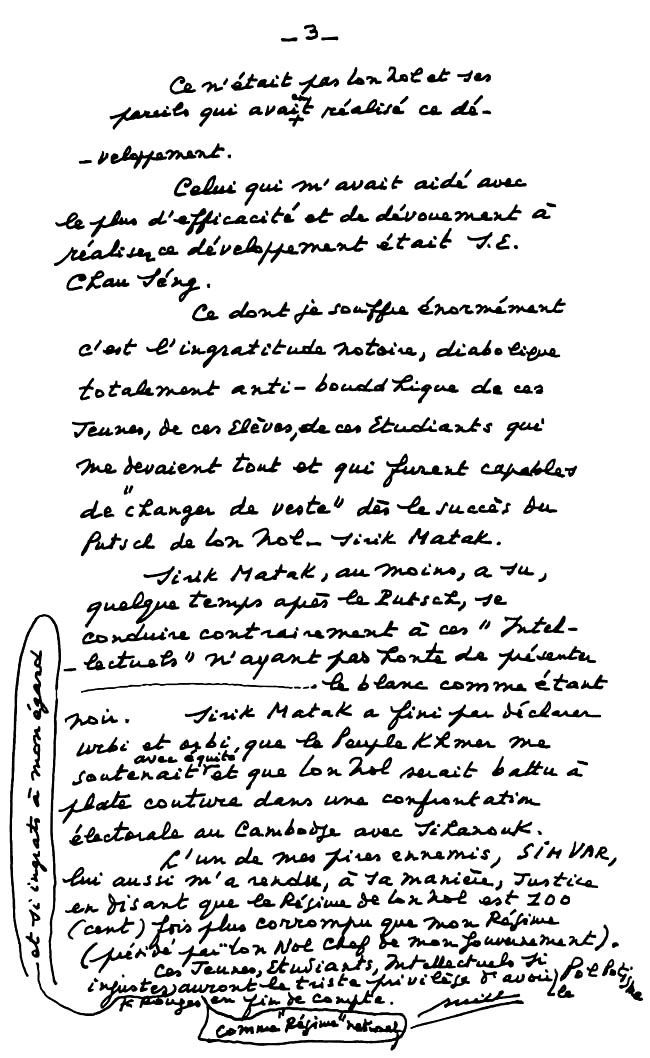 _ 3 _
Ce n'était pas Lon Nol et ses
pareils qui avaient réalisé ce dé-
- veloppement.
Celui qui m'avait aidé avec
le plus d'efficacité et de dévouement à
réaliser ce développement était S.E.
Chau Séng.
Ce dont je souffre énormément
c'est l'ingratitude notoire, diabolique
totalement anti-bouddhique de ces
Jeunes, de ces Elèves, de ces Etudiants qui
me devaient tout et qui furent capables
de "changer de veste" dès le succès du
Putsch de Lon Nol - Sirik Matak.
Sirik Matak, au moins, a su,
quelque temps après le Putsch, se
conduire contrairement à ces "Intel-
- lectuels" n'ayant pas honte de présenter
le blanc comme étant
noir. Sirik Matak a fini par déclarer
urbi et orbi, que le Peuple Khmer me
soutenait avec équité et que Lon Nol serait battu à
plate couture dans une confrontation
électorale au Cambodge avec Sihanouk.
L'un de mes pires ennemis, SIM VAR,
lui aussi m'a rendu, à sa manière, Justice
en disant que le Régime de Lon Nol est 100
(cent) fois plus corrompu que mon Régime
(présidé par "Lon Nol Chef de mon Gouvernement).
Ces Jeunes, Etudiants, Intellectuels si
injustes et si ingrats à mon égard auront le triste privilège d'avoir le Pol Potisme
K Rouges comme "Régime" national en fin de compte.